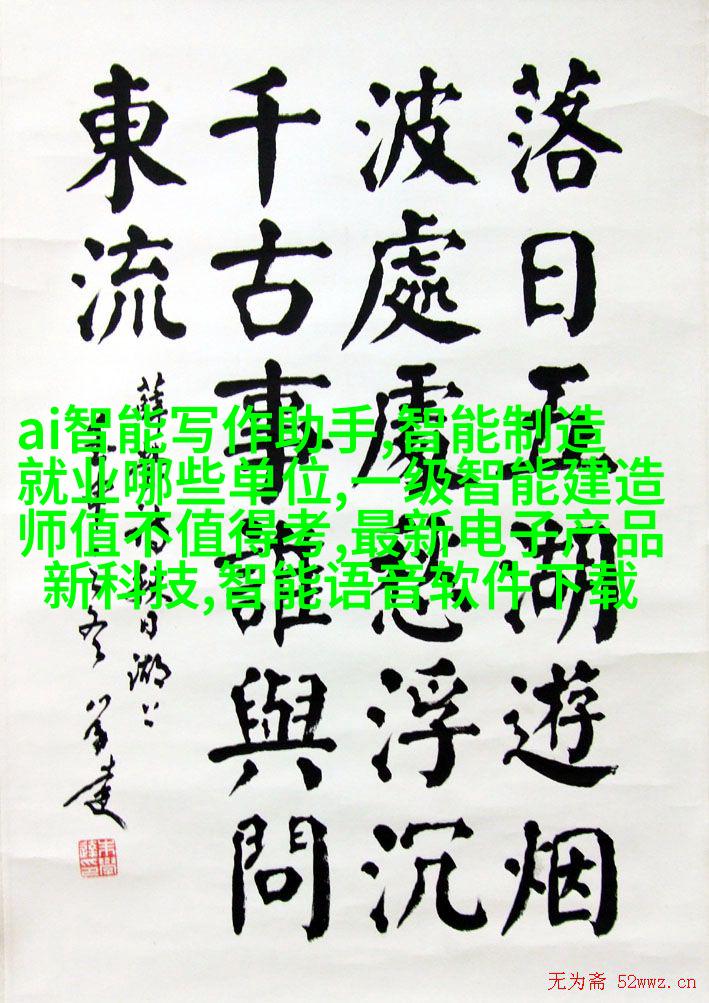 落日五湖遊烟
波處處愁浮沉
千古事誰與問
東流
薛詩秋日湖上
ai智能写作助手,智能制造
就业哪些单位,一级智能建造
师值不值得考,最新电子产品
新科技,智能语音软件下载
无为斋 52wwz.cn